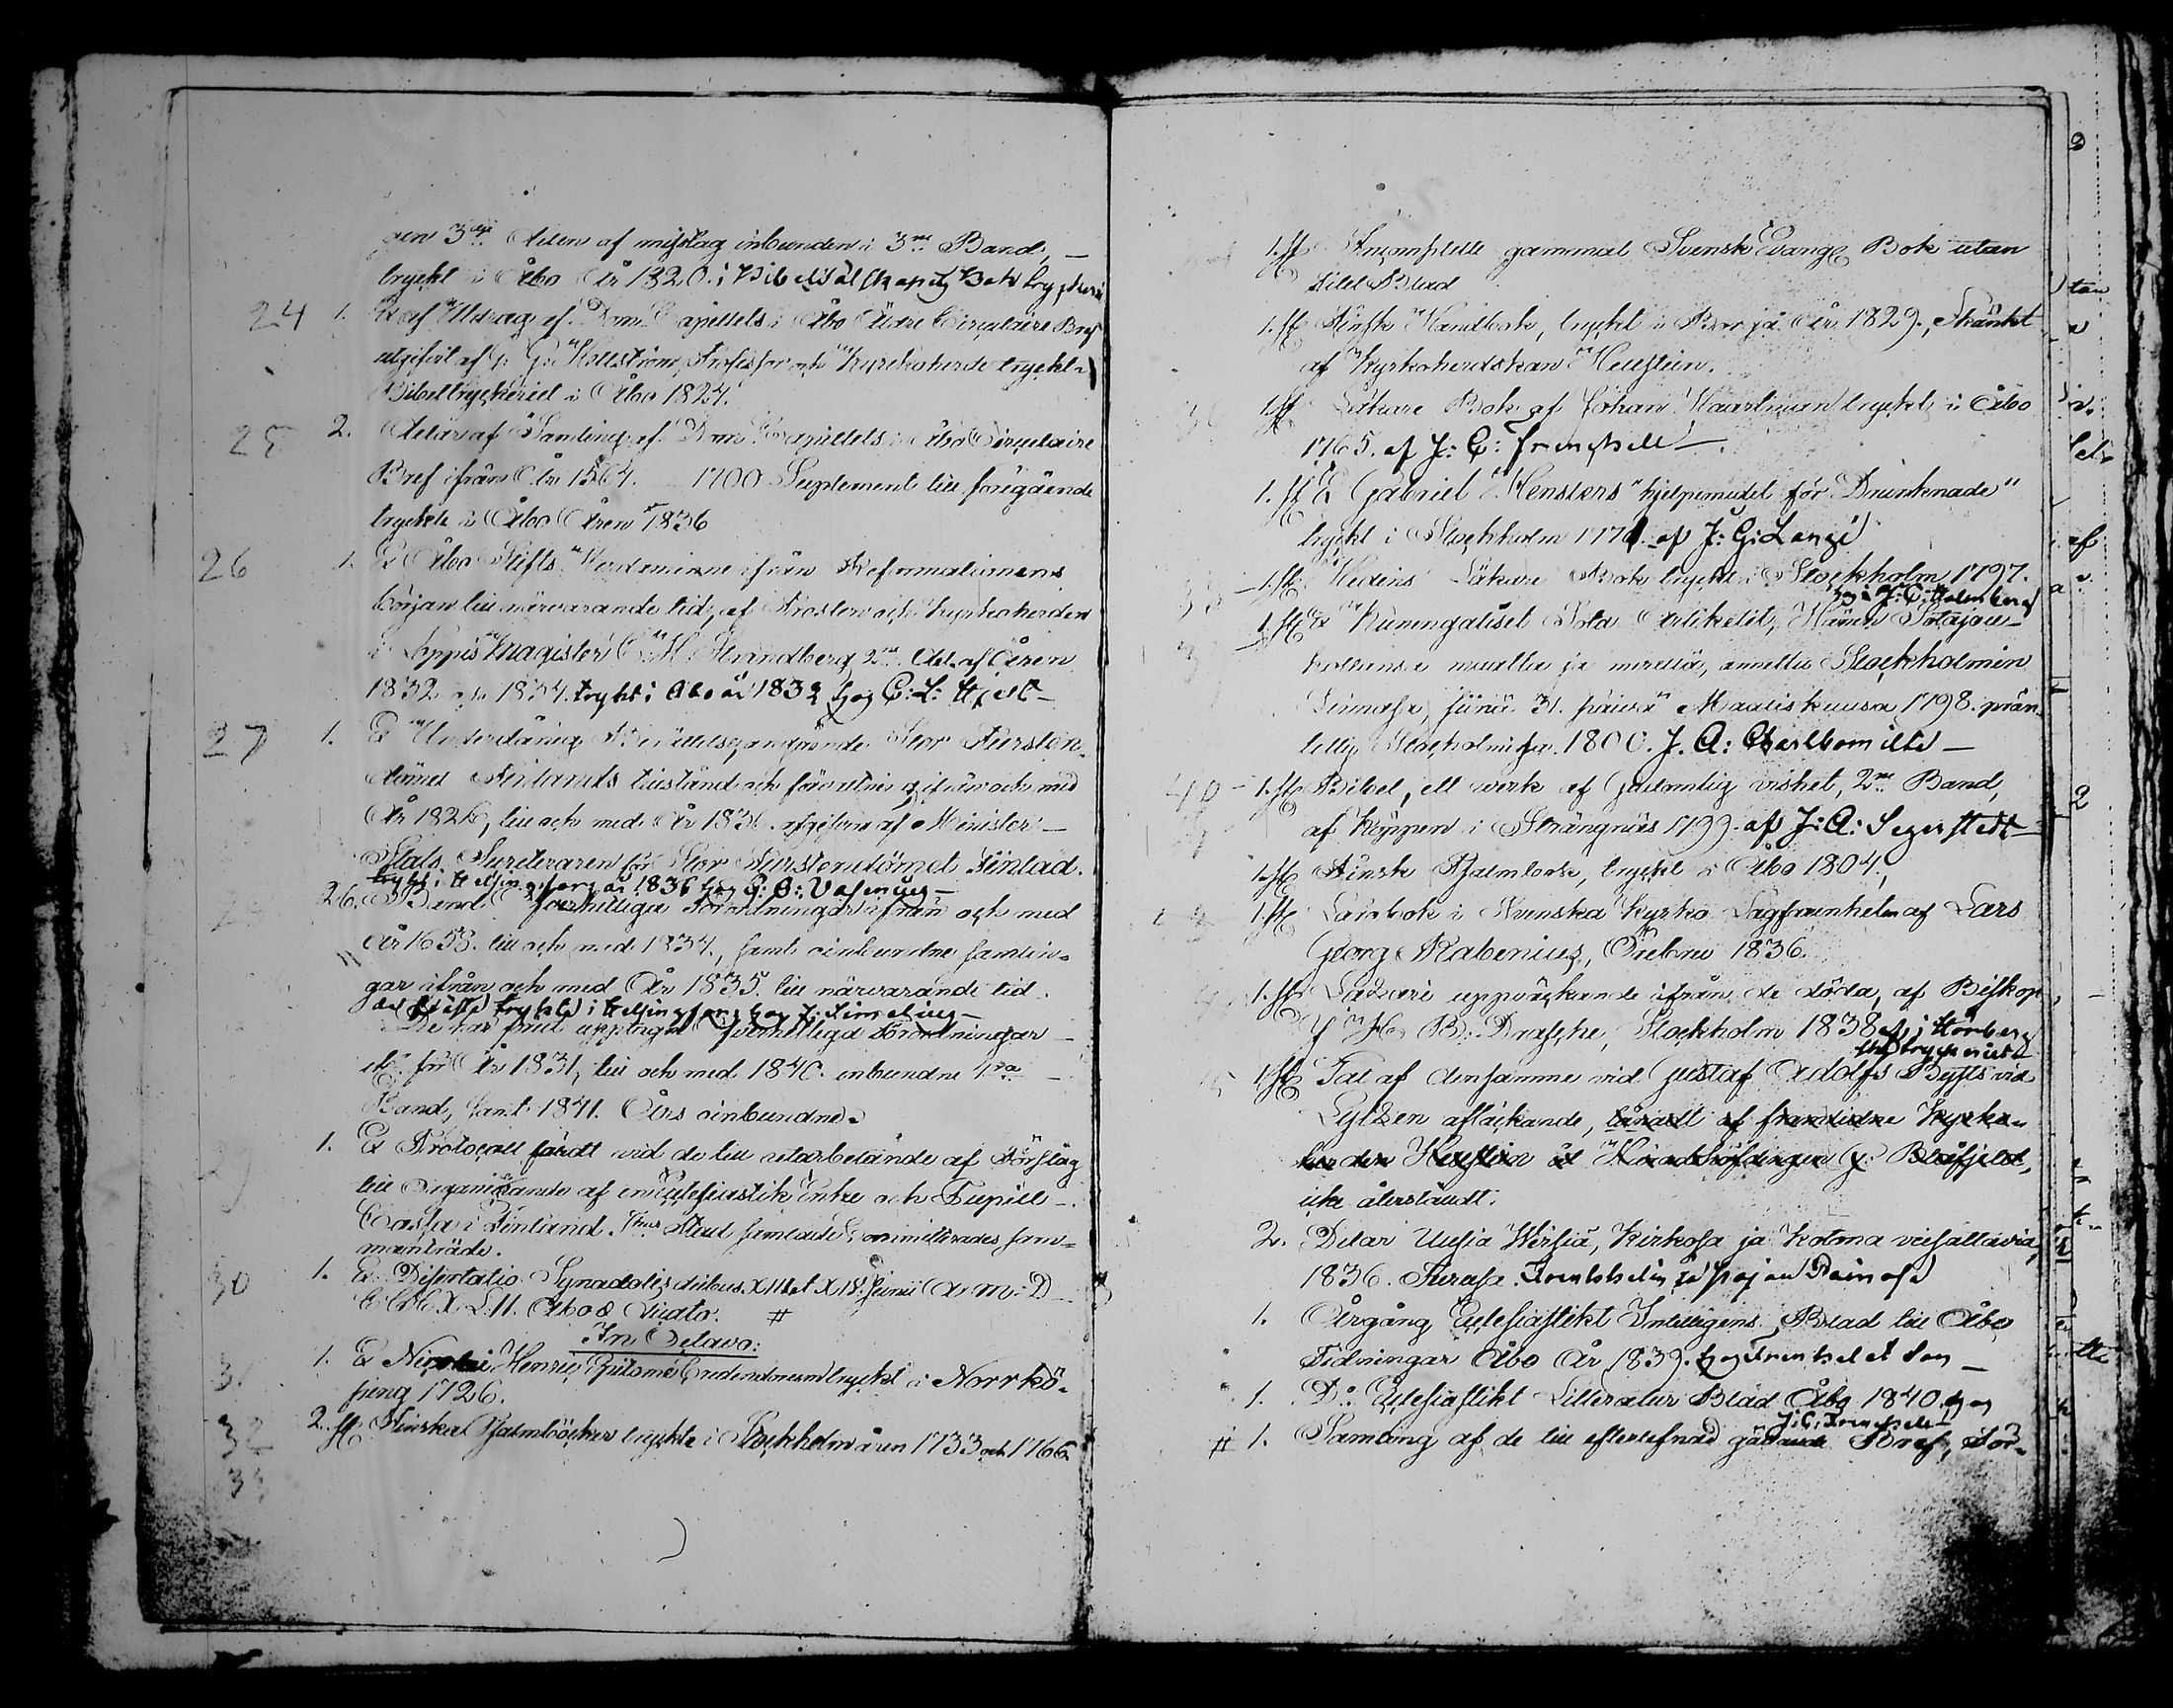 gen 3dje Delen af misstag inbunden i 3ne Band, —
tryckt i Åbo År 1820. i Bibelsälskapetz Boktryckeri
24 1. Ex af Utdrag af Dom Capitlets i Åbo Äldre Circulaire Bref
utgifvit af Hellström, Professor och Kyrkoherde tryckt i
Bibeltryckeriet i Åbo 1824.
25 2. Delar af Samling af Dom Capitlets i Åbo Circulaire
Bref ifrån År 1564. 1700 Suplement till föregående
tryckte i Åbo Åren 1836
26 1. Ex Åbo Stifts Herdaminne ifrån Reformationens
början till närvarande tid, af Prosten och Kyrkoherden
i Loppis Magister Strandberg 2ne Del. af Åren
1832 och 1834. trykt i Åbo år 1832 hos C: L: Hjelt —
27 1. Ex Underdånig Berättelse angående Stor Fursten-
dömet Finlands tillstånd och förvaltning ifrån och med
År 1826, till och med År 1831. afgifven af Minister —
Stats Secreteraren för Stor Furstendömet Finlad.
trykt i Helsingforz år 1836 hos G: O: Wasenius —
26. Band Författninga Förordningar ifrån och med
År 1658. till och med 1834., samt oinbundne samlin-
gar ifrån och med År 1835 till närvarande tid.
trykte i Helsingforz hos J: Simelius —
De här förut upptagne Förordningar —
etc: för År 1831, till och med 1840. inbundne 4ra —
Band, samt 1841. Års oinbundne.
1. Ex Protocoll fördt vid de till utarbetande af Förslag
till Organisande af en Eclesiastik Enke och Pupill —
Cassa i Finland. Stad samlade Committerades sam-
manträde.
30 1. Ex Disertatio Synodalis diebus XIII et XIV: Junii A: M: D
#
In Octavo:
31 1. Ex Nicolai Henric tryckt i Norrkö-
ping 1726.
32 2. st Finska Psalmböcker tryckte i Stockholm åren 1733 och 1766
33
1. st Incomplette gammal Svensk Evang Bok utan
titel Blad
1. st Finsk Handbok, tryckt i Borgå År 1829., Skänkt
af Kyrkoherdskan Hellstein.
1. st Läkare Bok af Johan Haartman tryckt i Åbo
1765. af J: C: Frenckell —
1. st Ex Gabriel Henslers "hjelpemedel för Drunknade"
tryckt i Stockholm 177 af J: G: Lange
1. st Hedins Läkare Bok tryckt i Stockholm 1797.
hos J: C: Holmberg
1. st Ex Kuningaliset Sota Artikelit, Hänen Sotajou-
koillensa maalla ja merellä, annettu Stockholmin
Linnassa, siinä 31. päivä Maaliskuusa 1798. prän-
tetty Stocholmissa 1800. J. A: Carlbomilta —
40 1. st Bibel, ett werk af Gudomlig vishet, 2ne Band,
af Köppen i Strängnäs 1799. af J: A: Segerstedt —
1. st Finsk Psalmbok, tryckt i Åbo 1804.,
1. st Lärobok i Svenska Kyrko Lagfarenheten af Lars
Georg Rabenius, Örebro 1836.
1. st Lazari uppväckande ifrån de döda, af Biskop
J H B: Dræseke, Stockholm 1838 af Hörberg
ska tryckeriet
1. st Tal af densamme vid Gustaf Adolfs Byst vid
Lytzen aftäckande, lånadt af framlidne Kyrko-
herden Hellstein åt Häradshöfdingen G: Blåfjeld,
icke återstäldt.
2. Delar Uusia Wirsiä, Kirkosa ja kotona veisattavia,
1836. Turusa. Frenckellin ja pojan Painosa
1. Årgång Eclesiastikt Inteligens Blad till Åbo
Tidningar Åbo År 1839. hos Frenckel et Son —
1. D:o Eclesiastikt Litteratur Blad Åbo 1840. hos
J: C: Frenckell
# 1. Samling af de till efterlefnad gällande Bref, För-